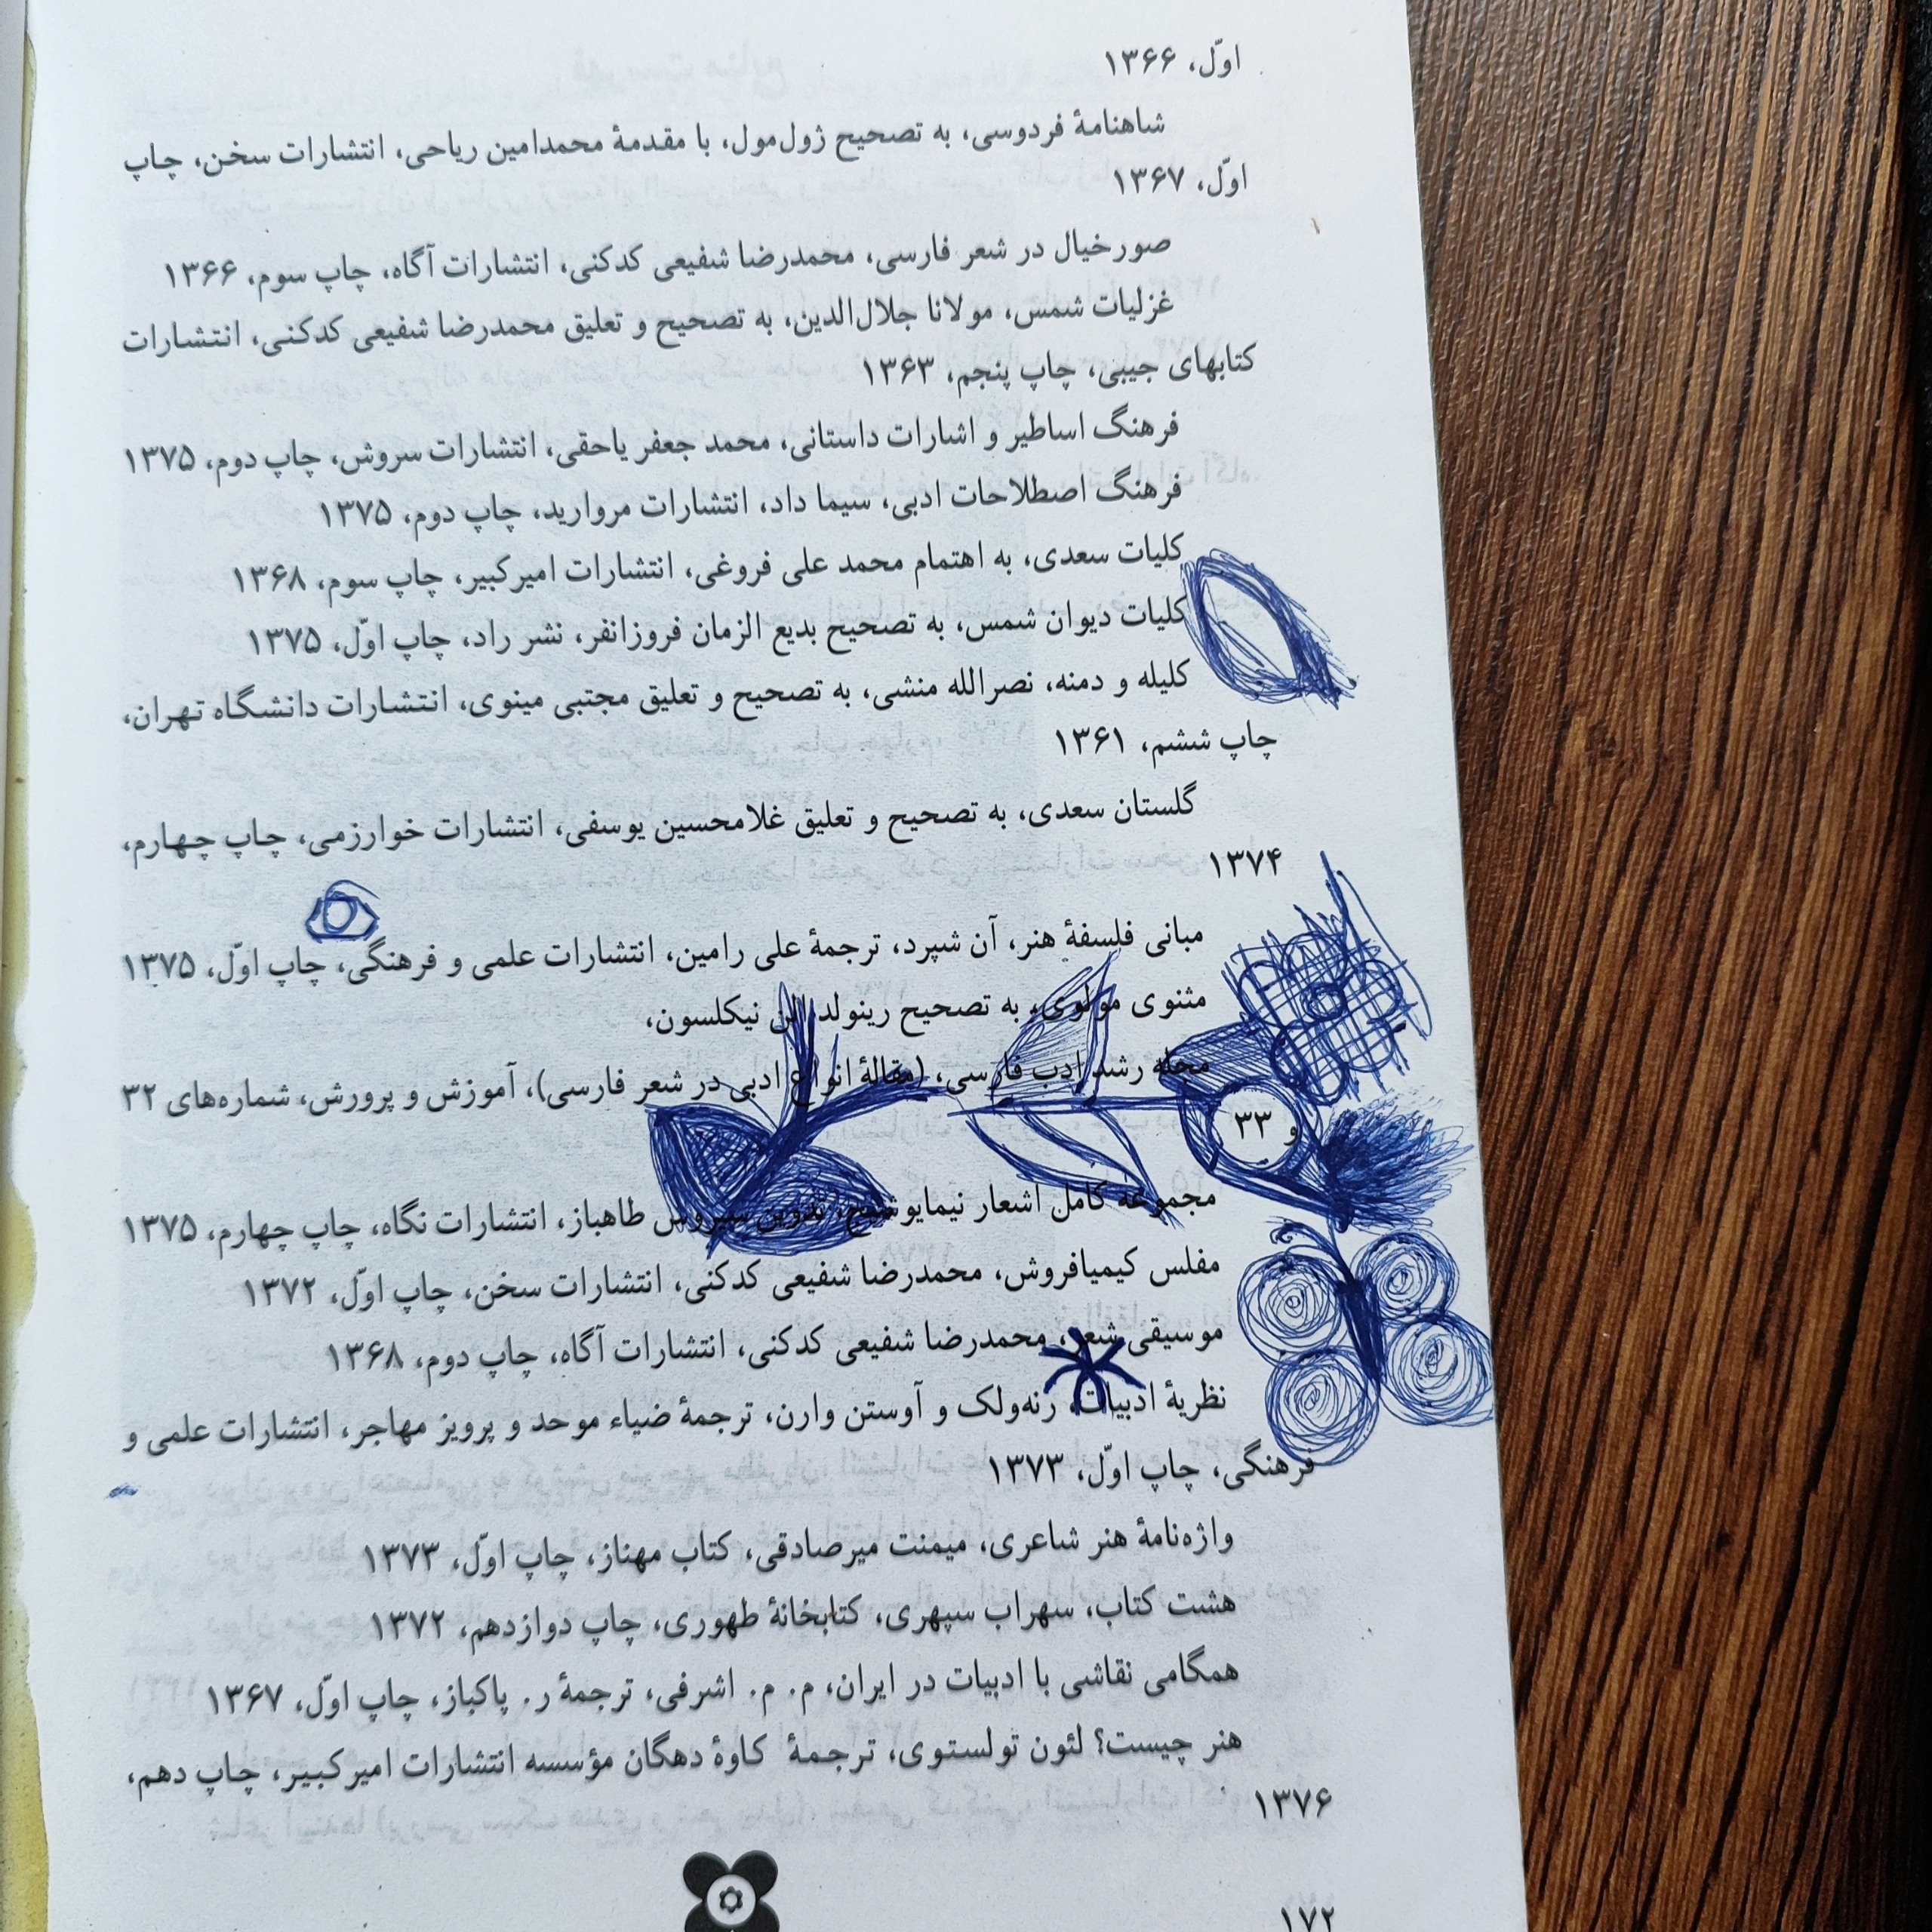 اوّل، ۱۳۶۶
شاهنامهٔ فردوسی، به تصحیح ژول‌مول، با مقدمهٔ محمدامین ریاحی، انتشارات سخن، چاپ
اوّل، ۱۳۶۷
صورخیال در شعر فارسی، محمدرضا شفیعی کدکنی، انتشارات آگاه، چاپ سوم، ۱۳۶۶
غزلیات شمس، مولانا جلال‌الدین، به تصحیح و تعلیق محمدرضا شفیعی کدکنی، انتشارات
کتابهای جیبی، چاپ پنجم، ۱۳۶۳
فرهنگ اساطیر و اشارات داستانی، محمد جعفر یاحقی، انتشارات سروش، چاپ دوم، ۱۳۷۵
فرهنگ اصطلاحات ادبی، سیما داد، انتشارات مروارید، چاپ دوم، ۱۳۷۵
کلیات سعدی، به اهتمام محمد علی فروغی، انتشارات امیرکبیر، چاپ سوم، ۱۳۶۸
کلیات دیوان شمس، به تصحیح بدیع الزمان فروزانفر، نشر راد، چاپ اوّل، ۱۳۷۵
کلیله و دمنه، نصرالله منشی، به تصحیح و تعلیق مجتبی مینوی، انتشارات دانشگاه تهران،
چاپ ششم، ۱۳۶۱
گلستان سعدی، به تصحیح و تعلیق غلامحسین یوسفی، انتشارات خوارزمی، چاپ چهارم،
۱۳۷۴
مبانی فلسفهٔ هنر، آن شپرد، ترجمهٔ علی رامین، انتشارات علمی و فرهنگی، چاپ اوّل، ۱۳۷۵
مثنوی مولوی، به تصحیح رینولد الن نیکلسون،
مجله رشد ادب فارسی، (مقالهٔ انواع ادبی در شعر فارسی)، آموزش و پرورش، شماره‌های ۳۲
و ۳۳
مجموعه کامل اشعار نیمایوشیج، تدوین سیروس طاهباز، انتشارات نگاه، چاپ چهارم، ۱۳۷۵
مفلس کیمیافروش، محمدرضا شفیعی کدکنی، انتشارات سخن، چاپ اوّل، ۱۳۷۲
موسیقی شعر، محمدرضا شفیعی کدکنی، انتشارات آگاه، چاپ دوم، ۱۳۶۸
نظریهٔ ادبیات، رنه‌ولک و آوستن وارن، ترجمهٔ ضیاء موحد و پرویز مهاجر، انتشارات علمی و
فرهنگی، چاپ اوّل، ۱۳۷۳
واژه‌نامهٔ هنر شاعری، میمنت میرصادقی، کتاب مهناز، چاپ اوّل، ۱۳۷۳
هشت کتاب، سهراب سپهری، کتابخانهٔ طهوری، چاپ دوازدهم، ۱۳۷۲
همگامی نقاشی با ادبیات در ایران، م. م. اشرفی، ترجمهٔ ر. پاکباز، چاپ اوّل، ۱۳۶۷
هنر چیست؟ لئون تولستوی، ترجمهٔ کاوهٔ دهگان مؤسسه انتشارات امیرکبیر، چاپ دهم،
۱۳۷۶
۱۷۲